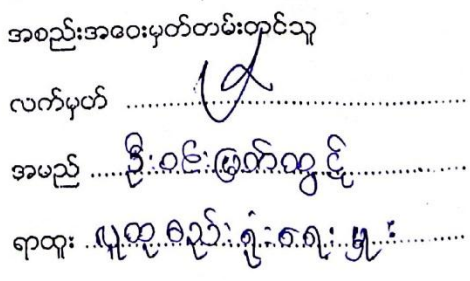 အစည်းအဝေးမှတ်တမ်းတင်သူ
လက်မှတ် ....................
အမည် ..... ဦးဝင်းမြတ်ထွဋ်
ရာထူး ..... လူထုစည်းရုံးရေးမှူး